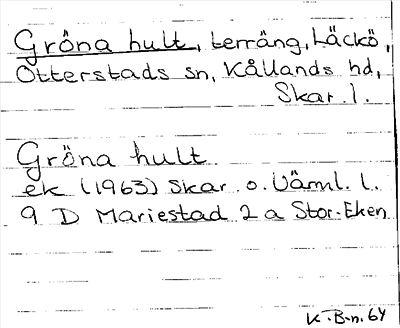 Gröna hult, terräng, Läckö,
Otterstads sn, Kållands hd,
Skar. l.
Gröna hult
ek (1963) Skar. o. Värml. l.
9 D Mariestad 2 a Stor-Eken
K.B-n. 64